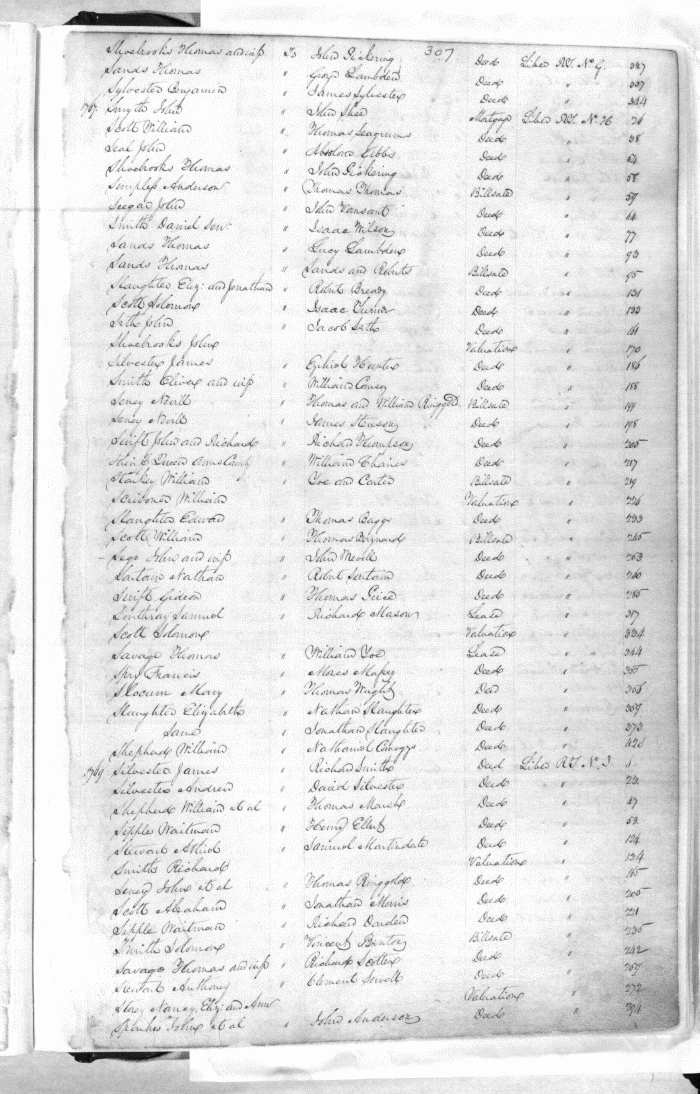 307
Shoebrooks Thomas and wife To John Pickering Deed Liber RT. No G. 327
Sands Thomas " Lambden Deed " 337
Sylvester Benjamin " James Sylvester Deed " 344
1767 Smyth John " John Shee Mortgage Liber RT. No H 26
Scott William " Thomas Seagrums Deed " 38
Seal John " Absolom Gibbs Deed " 54
Shoebrooks Thomas " John Pickering Deed " 58
Simpless Anderson " Thomas Thomas Billsale " 59
Seegar John " John Vansant Deed " 64
Smith Daniel Senr " Isaac Wilson Deed " 77
Sands Thomas " Lucy Lambden Deed " 93
Sands Thomas " Sands and Roberts Billsale " 95
Slaughter Eliz: and Jonathan " Robert Bready Deed " 131
Scott Solomon " Isaac Turner Deed " 132
Seth John " Jacob Seth Deed " 161
Shoebrooks John Valuation " 170
Silvester James " Ezekiel Hunter Deed " 186
Smith Oliver and wife " William Comegy Deed " 188
Seney Nevill " Thomas and William Ringgold Billsale " 191
Seney Nevill " James Henson Deed " 198
Swift John and Richard " Richard Thompson Deed " 205
Queen Anns County " William Chaires Deed " 217
Starkey William " Yoe and Carter Billsale " 219
Scribner William Valuation " 226
Slaughter Edward " Thomas Baggs Deed " 233
Scott William " Thomas Baynard Billsale " 245
Sego John and wife " John Meeds Deed " 263
Sartain Nathan " Robert Sartain Deed " 260
Swift Gideon " Thomas Price Deed " 285
Samuel " Richard Mason Lease " 317
Scott Solomon Valuation " 334
Savage Thomas " William Yoe Lease " 344
Spry Francis " Moses Massey Deed " 355
Slocum Mary " Thomas Wright Deed " 356
Slaughter Elizabeth " Nathan Slaughter Deed " 367
Same " Jonathan Slaughter Deed " 373
Shepherd William " Nathaniel Comegys Deed " 426
1769 Silvester James " Richard Smith Deed Liber RT. No I 8
Silvester Andrew " David Silvester Deed " 23
Shepherd William et al " Thomas Marsh Deed " 47
Sipple Waitman " Henry Elbert Deed " 53
Stewart " Samuel Martindale Deed " 124
Smith Richard Valuation " 134
Seney John et al " Thomas Ringgold Deed " 165
Scott Abraham " Jonathan Morris Deed " 205
Sipple Waitman " Richard Darden Deed " 221
Smith Solomon " Vincent Benton Billsale " 235
Savage Thomas and wife " Richard Scotten Deed " 242
Stewart Anthony " Clement Sewell Deed " 267
Storey Nancy, Eliz: and Ann Valuation " 272
John et al " John Anderson Deed " 294